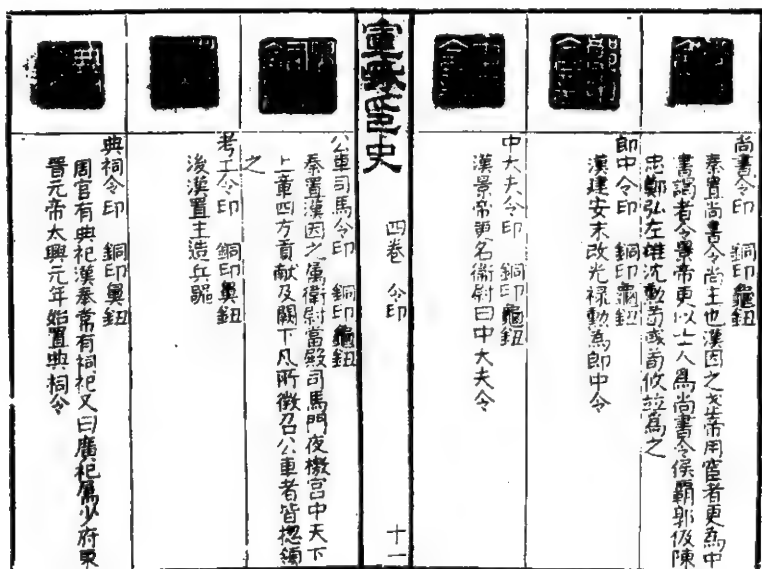 尚書令印　銅印龜鈕
秦置尚書令尚主也漢因之武帝用宦者更為中
書謁者令景帝更以士人為尚書令侯霸郭伋陳
忠鄭弘左雄沈勳荀彧荀攸竝為之
郎中令印　銅印龜鈕
漢建安末改光祿勳為郎中令
中大夫令印　銅印龜鈕
漢景帝更名衞尉曰中大夫令
宣和印史
四卷　令印
十一
公車司馬令印　銅印龜鈕
秦置漢因之屬衛尉當殿司馬門夜檄宮中天下
上章四方貢獻及闕下凡所徵召公車者皆揔領
之
考工令印　銅印鼻鈕
後漢置主造兵器
典祠令印　銅印鼻鈕
周官有典祀漢奉常有祠祀又曰廣祀屬少府東
晉元帝太興元年始置典祠令